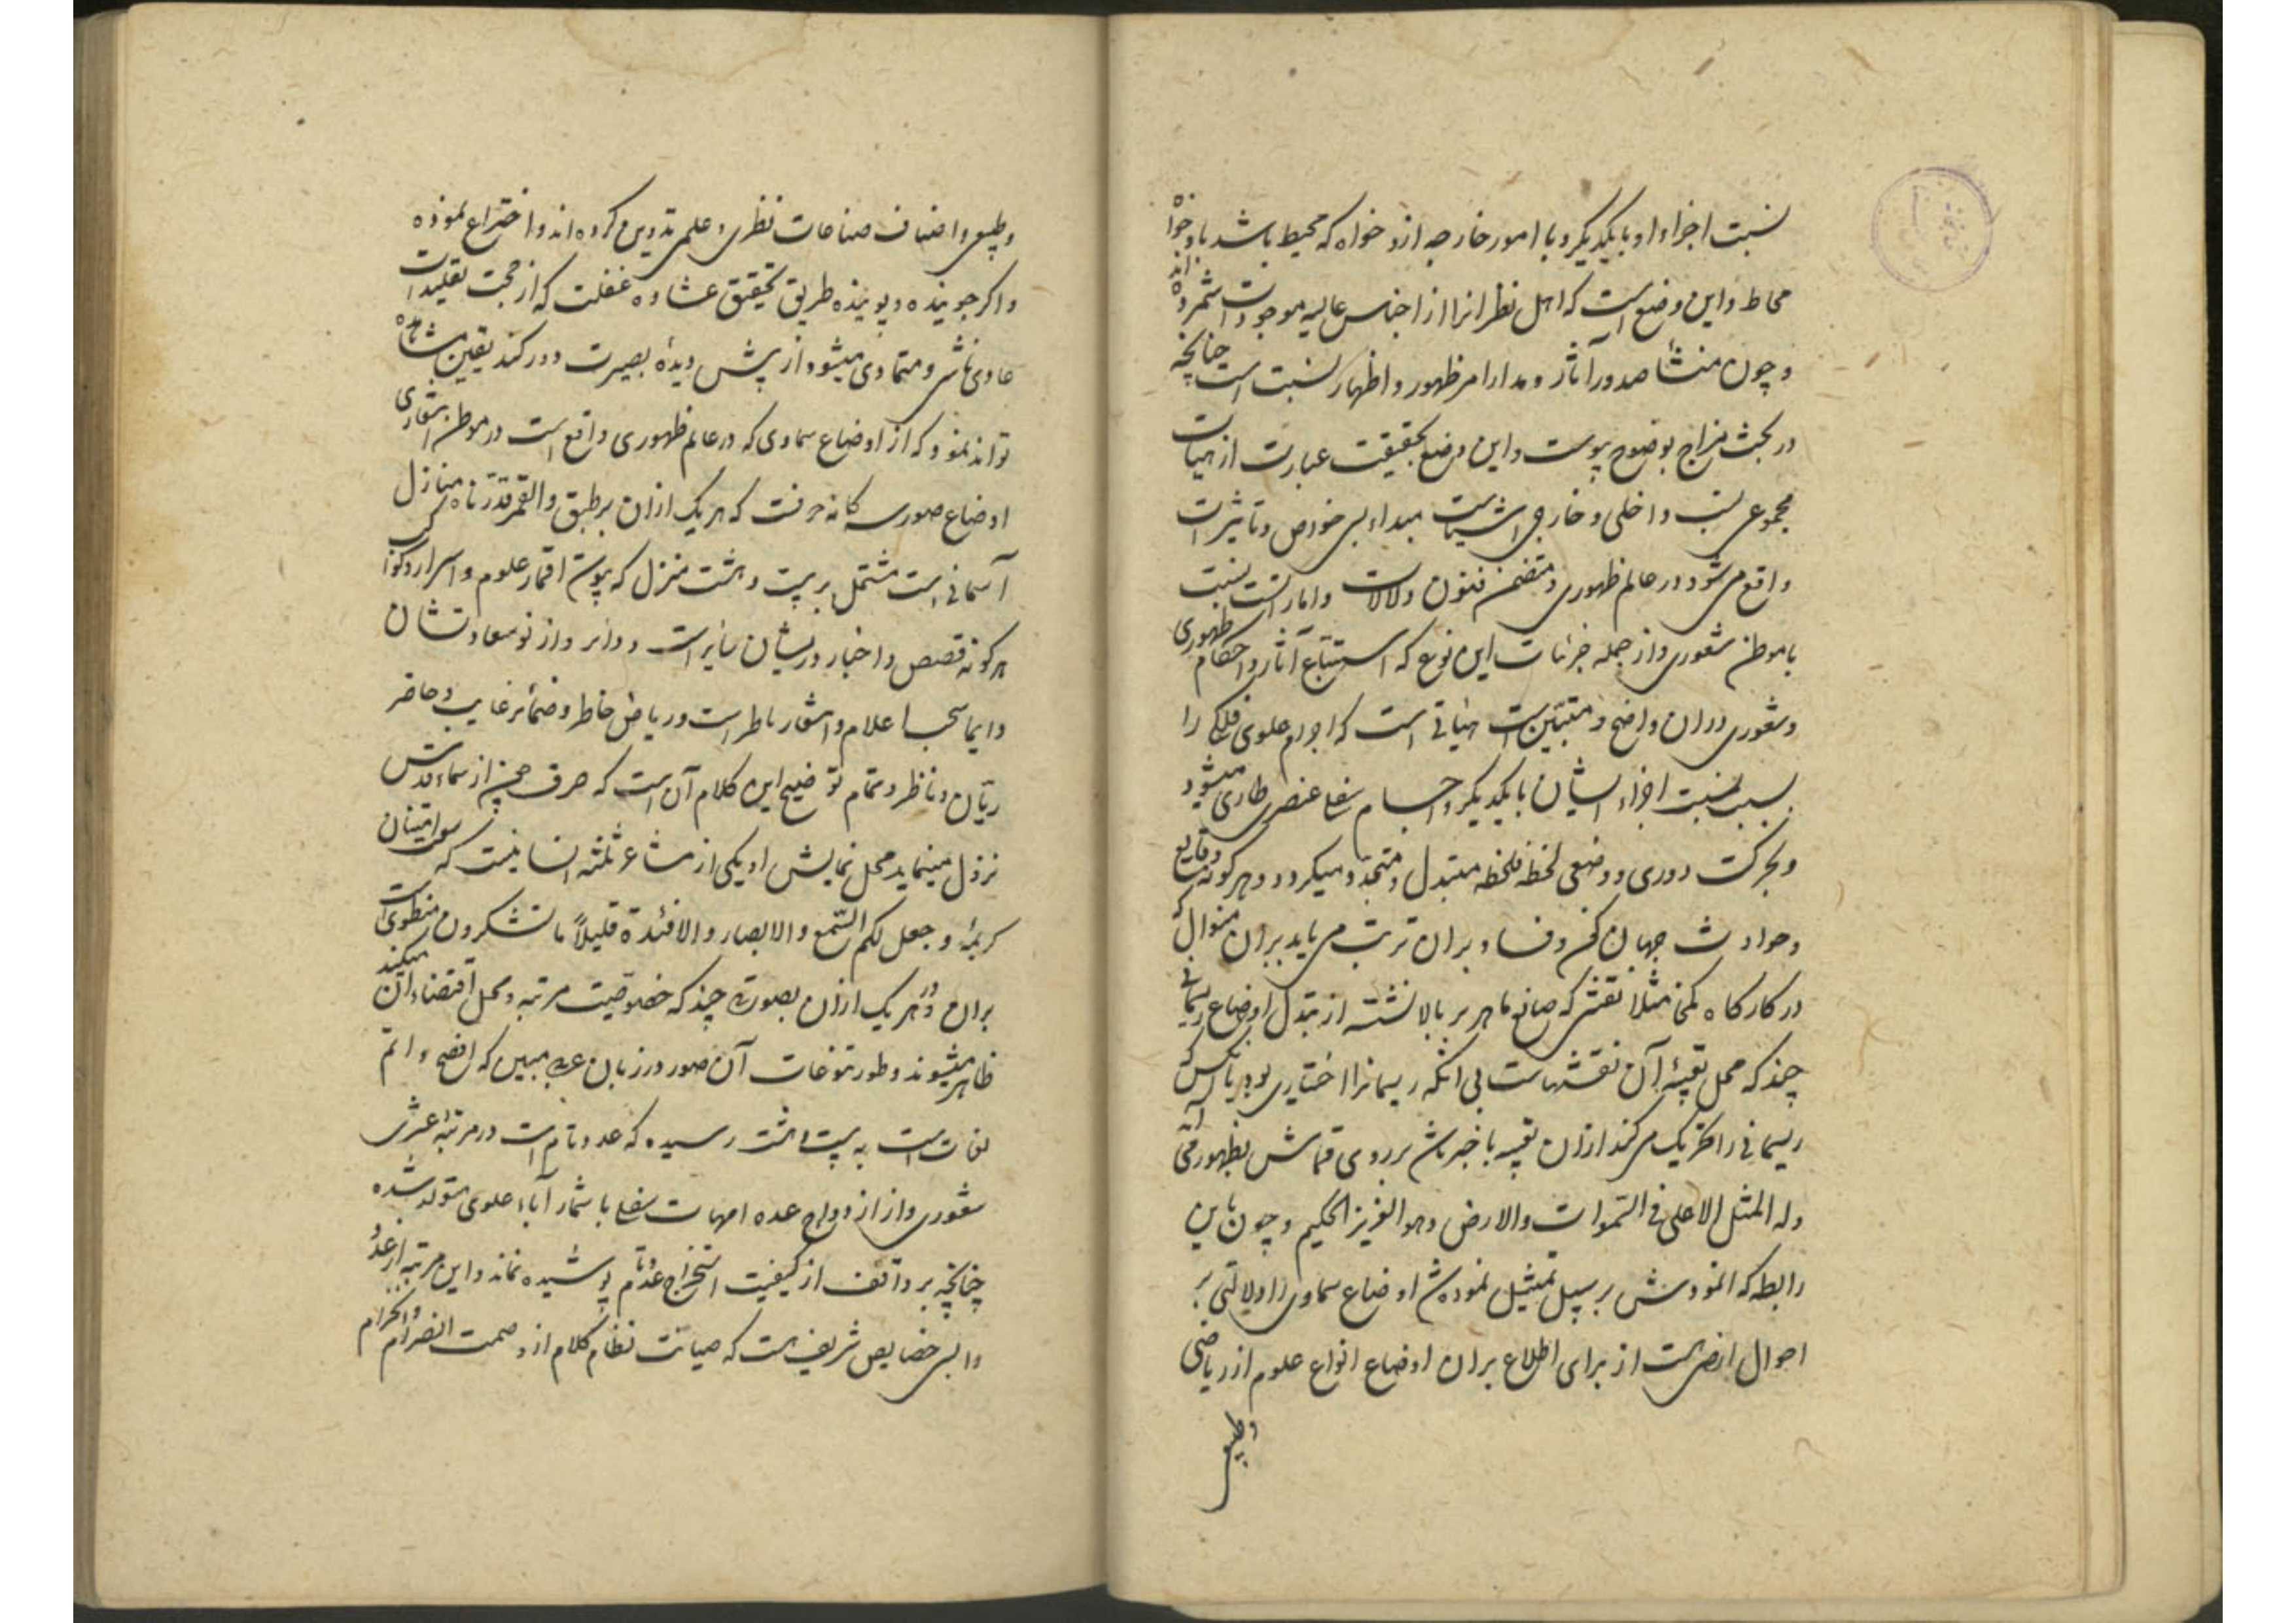 نسبت اجزاء او با یکدیگر و با امور خارجه ازو خواه که محیط باشد باو خواه
محاط و این وضع است که اهل نظر انرا از اجناس عالیه موجودات شمرده اند
و چون منشأ صدور آثار و مدار امر ظهور و اظهار نسبت است چنانچه
در بحث مزاج بوضوح پیوست و این وضع بحقیقت عبارت از هیأت
مجموعی نسب داخلی و خارجی اشیاست مبداء بسی خواص و تاثیرات
واقع می شود در عالم ظهوری و متضمن فنون دلالات و امارتست نسبت
با موطن شعوری و از جمله جزئیات این نوع که استتباع آثار و احکام ظهوری
و شعوری دران واضح و متبیّن است هیأتی است که اجرام علوی فلکی را
بسبب نسبت اجزاء ایشان با یکدیگر و اجسام سفلی عنصری طاری میشود
و بحرکت دوری و وضعی لحظة فلحظة متبدل و متجدد میگردد و هرگونه وقایع
و حوادث جهان کون و فساد بران ترتب می یابد بران منوال که
در کارگاه کمخا مثلا نقشی که صانع ماهر بر بالا نشسته از تبدل اوضاع ریسمانی
چند که محل تعبیهٔ آن نقشهاست بی انکه ریسمانرا اختیاری بود یا آنکس که
ریسمانی را تحریک می کند ازان تعبیه با خبر باشد بر روی قماش بظهور می آید
وله المثل الاعلی فی السّموات والارض وهو العزیز الحکیم و چون باین
رابطه که انموذجش بر سبیل تمثیل نموده شد اوضاع سماوی را دلالتی بر
احوال ارضی هست از برای اطلاع بران اوضاع انواع علوم از ریاضی
وطبیعی
وطبیعی و اصناف صناعات نظری و علمی تدوین کرده اند و اختراع نموده
و اگر جوینده و پوینده طریق تحقیق غشاوه غفلت که از حجت تقلیدات
عادی ناشی و متمادی میشود از پیش دیدهٔ بصیرت دور کند یقین مشاهده
تواند نمود که از اوضاع سماوی که در عالم ظهوری واقع است در موطن اشعاری
اوضاع صوری سه گانه حرفست که هر یک ازان بر طبق والقمر قدّرناه منازل
آسمانی است مشتمل بر بیست و هشت منزل که پیوسته اقمار علوم و اسرار و کواکب
هرگونه قصص و اخبار دریشان سایرست و دایر و از نوء سعادتشان
دایما سحاب اعلام و اشعار ماطرست و ریاض خاطر و ضمائر غایب و حاضر
ریّان و ناظر و تمام توضیح این کلام آن است که حرف چون از سماء قدس
نزول مینماید محل نمایش او یکی از مشاعر ثلثهٔ انسانیست که سوق امتنان
کریمهٔ وجعل لکم السّمع والابصار والافئدة قلیلاً ما تشکرون منطوی است
بران و در هر یک ازان بصورتی چند که خصوصیت مرتبه و محل اقتضاء ان میکند
ظاهر میشوند و طور تنوعات آن صور در زبان عربی مبین که افصح و اتم
لغات است به بیست و هشت رسیده که عدد تام است در مرتبهٔ عشری
شعوری و از ازدواج عده امهات سفلی با شمار آباء علوی متولد شده
چنانچه بر واقف از کیفیت استخراج عدد تام پوشیده نماند و این مرتبه از عدد
را بسی خصایص شریف هست که صیانت نظام کلام از وصمت انصرام و انخرام